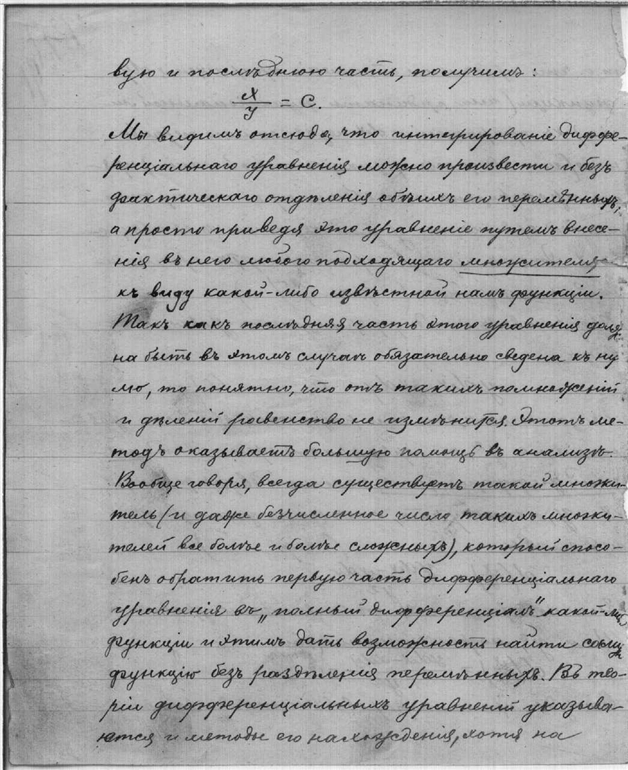 вую и послѣднюю часть, получимъ:
x/y = C.
Мы видимъ отсюда, что интегрированіе диффе-
ренціальнаго уравненія можно произвести и безъ
фактическаго отдѣленія обѣихъ его перемѣнныхъ,
а просто приведя это уравненіе путемъ внесе-
нія въ него любого подходящаго множителя
къ виду какой-либо извѣстной намъ функціи.
Такъ какъ послѣдняя часть этого уравненія долж
на быть въ этомъ случаѣ обязательно сведена къ ну
лю, то понятно, что отъ такихъ помноженій
и дѣленій равенство не измѣнится. Этотъ ме-
тодъ оказываетъ большую помощь въ анализѣ.
Вообще говоря, всегда существуетъ такой множи-
тель (и даже безчисленное число такихъ множи-
телей все болѣе и болѣе сложныхъ), который спосо-
бенъ обратить первую часть дифференціальнаго
уравненія въ „полный дифференціалъ" какой-либо
функціи и этимъ дать возможность найти самую
функцію безъ раздѣленія перемѣнныхъ. Въ тео-
ріи дифференціальныхъ уравненій указыва-
ются и методы его нахожденія, хотя на